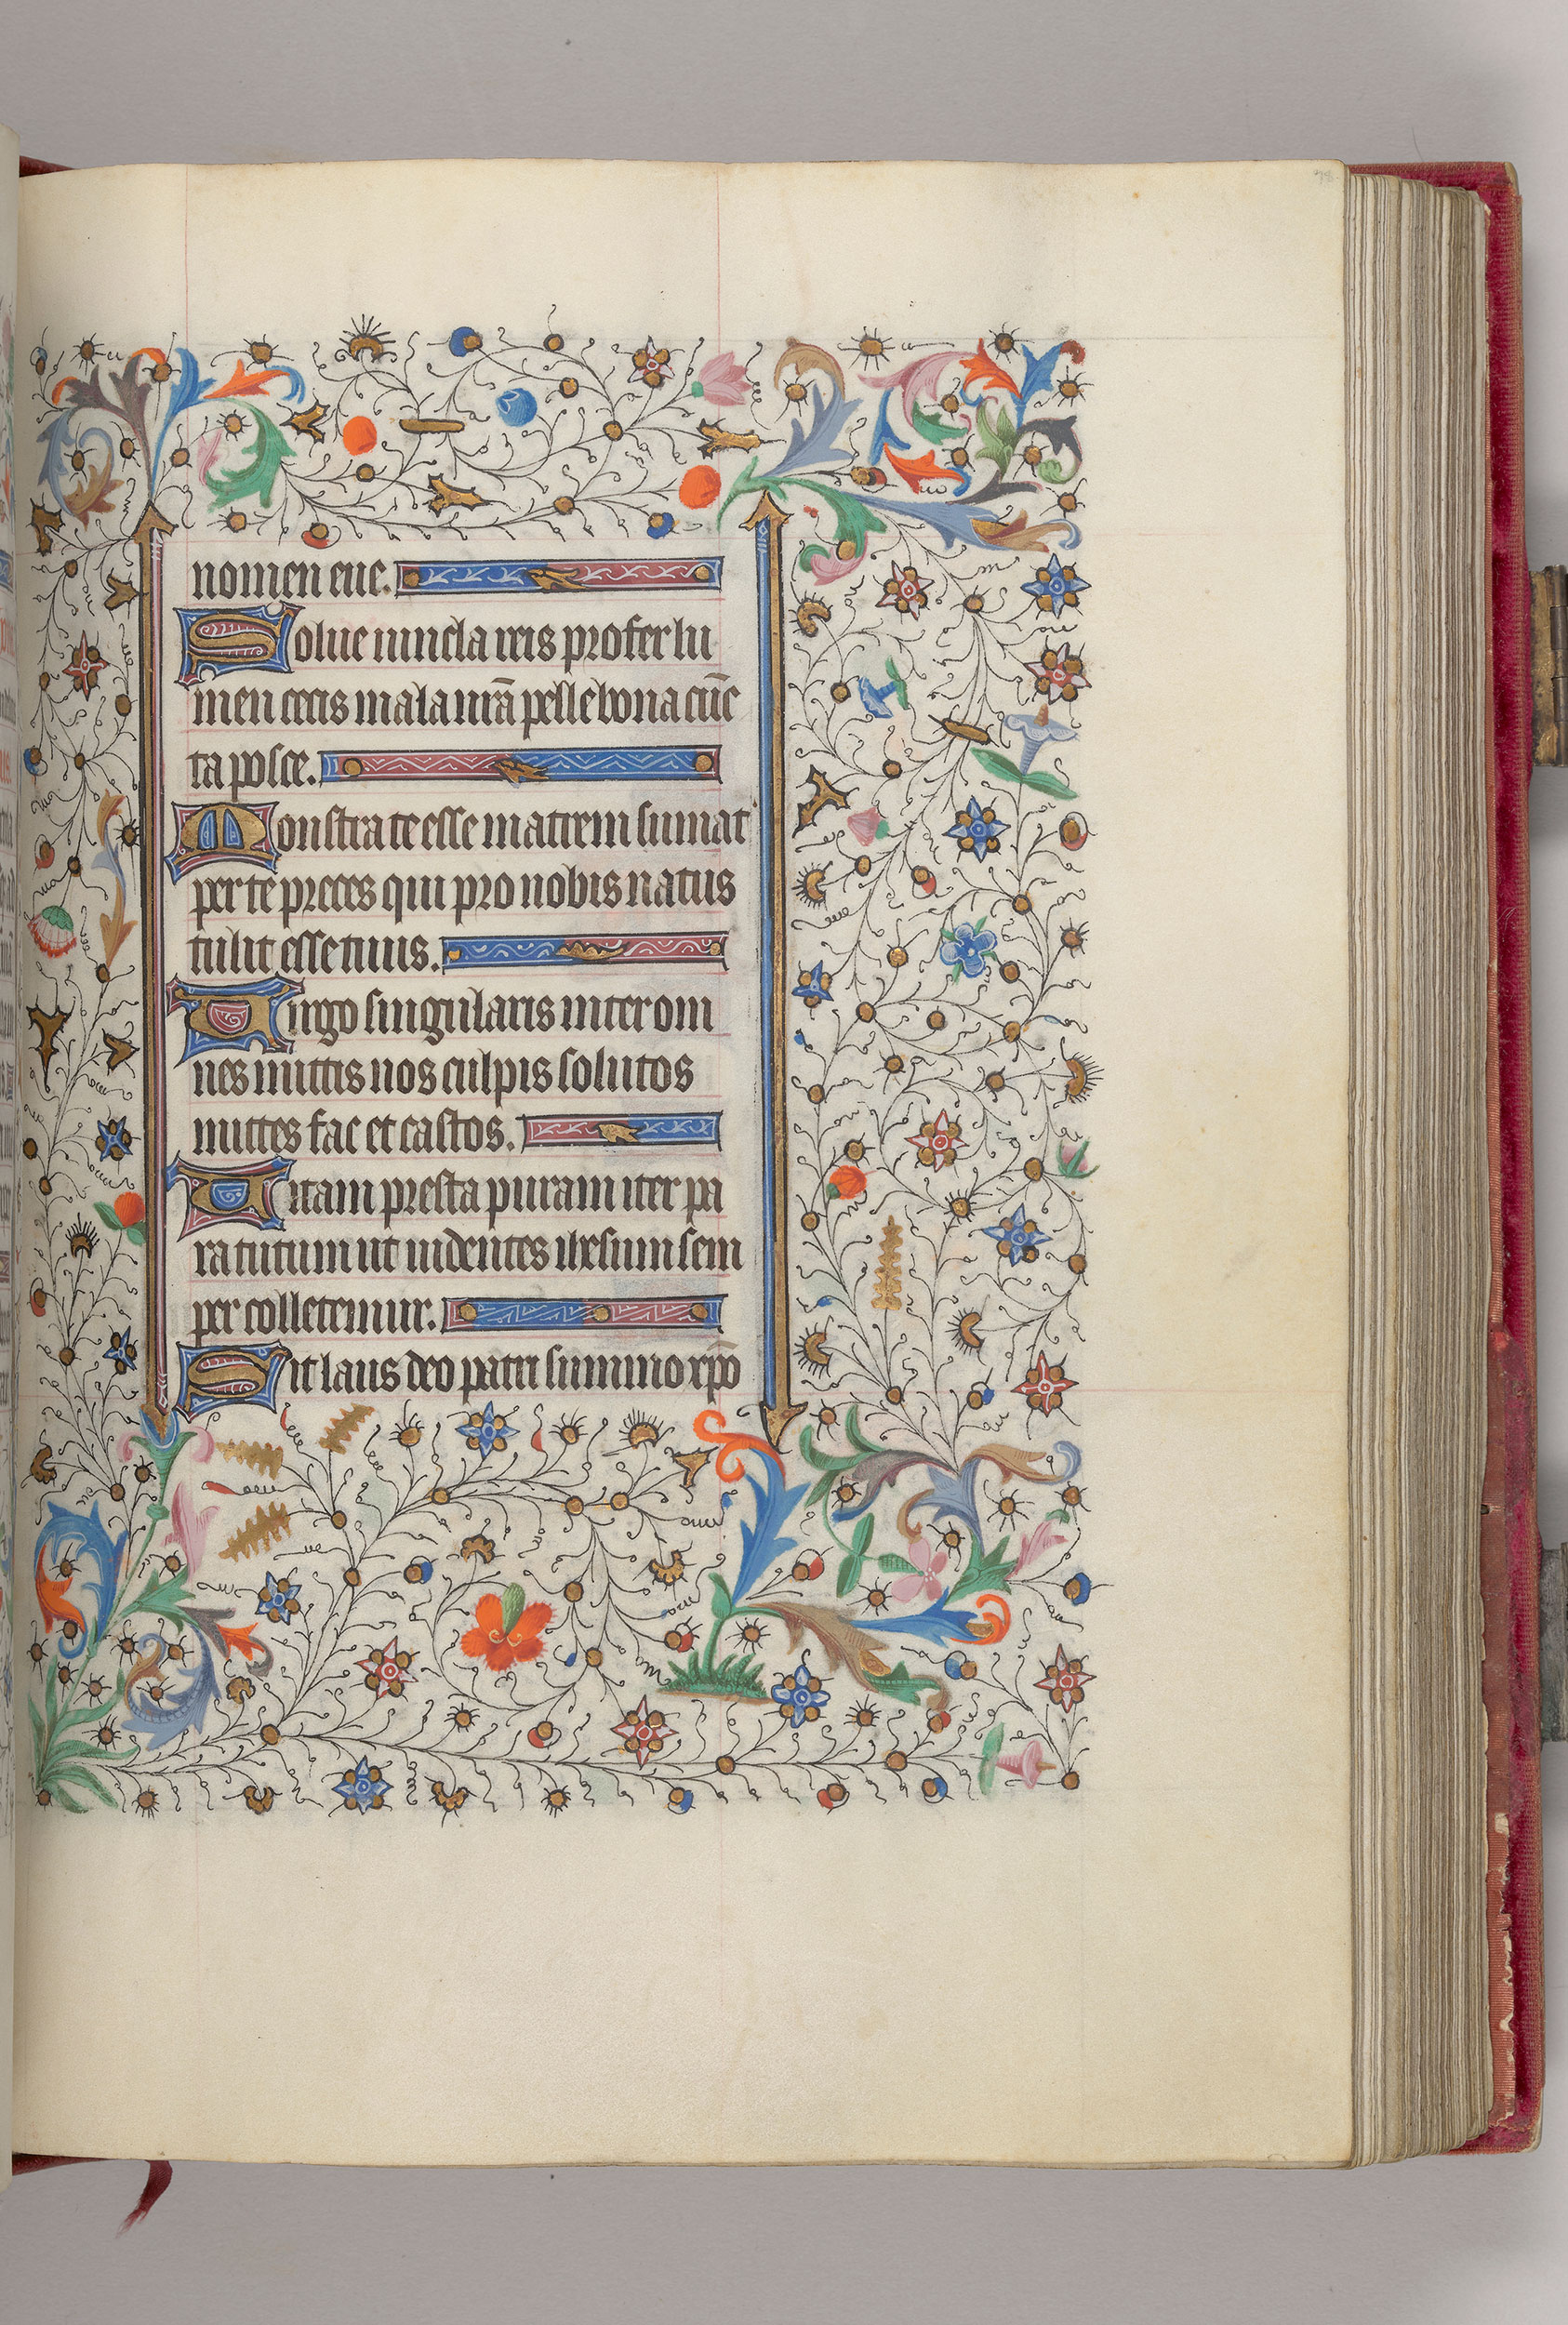 nomen eue.
Solue uincla reis profer lu
men cecis mala nr̄a pelle bona cūc
ta posce.
Monstra te esse matrem sumat
per te preces qui pro nobis natus
tulit esse tuus.
Uirgo singularis inter om
nes mittis nos culpis solutos
mittes fac et castos.
Uitam presta puram iter pa
ra tutum ut uidentes ihesum sem
per colletemur.
Sit laus deo patri summo xp̄o